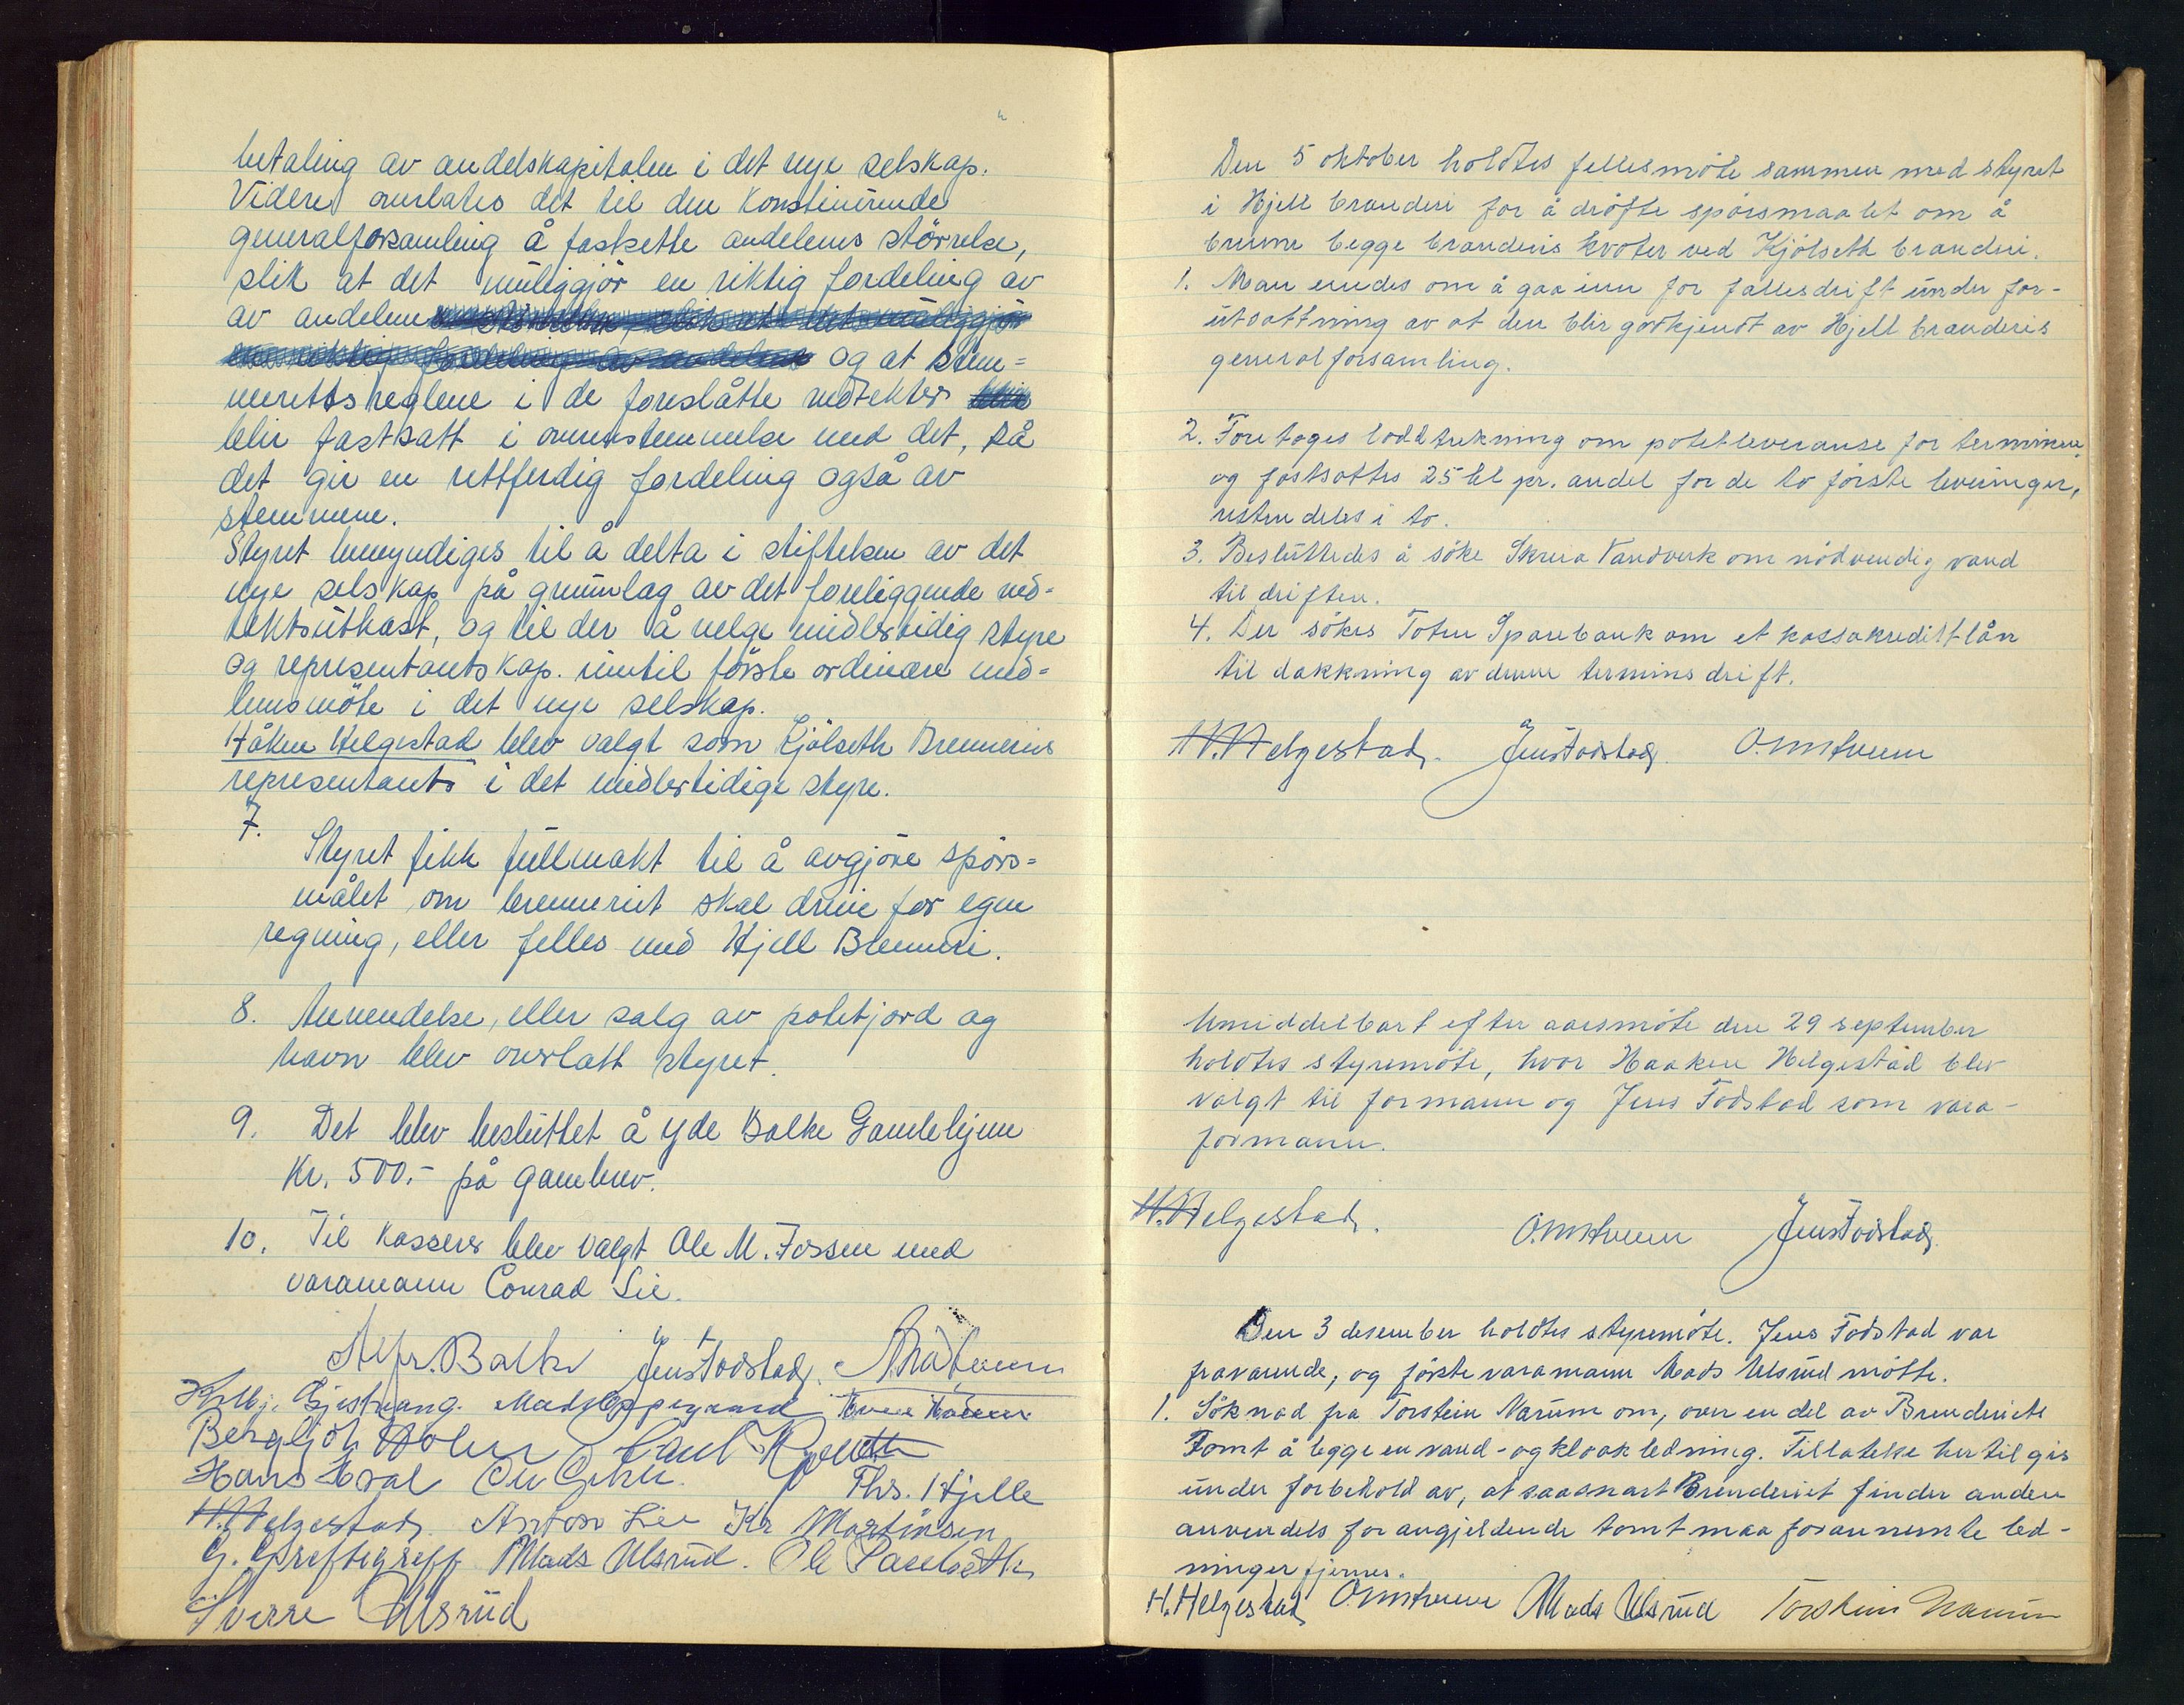 betaling av andelskapitalen i det nye selskap.
Videre overlates det til den konstituerende
generalforsamling å fastsette andelenes størrelse,
slik at det muliggjør en riktig fordeling av
av andelene
og at stem=
merettsreglene i de foreslåtte vedtekter
blir fastsatt i overenstemmelse med det, så
det gir en rettferdig fordeling også av
stemmene.
Styret bemyndiges til å delta i stiftelsen av det
nye selskap på grunnlag av det foreliggende ved=
tektsutkast, og til der å velge midlertidig styre
og representantskap. inntil første ordinære med=
lemsmøte i det nye selskap.
Håken Helgestad blev valgt som Kjølseth Brenneris
representant i det midlertidige styre.
7.
Styret fikk fullmakt til å avgjøre spørs=
målet om brenneriet skal drive for egen
regning, eller felles med Hjell Brenneri.
8. Anvendelse, eller salg av potetjord og
havn blev overlatt styret.
9. Det blev besluttet å yde Balke Gamlehjem
Kr. 500.- på gavebrev.
10. Til Kasserer blev valgt Ole M. Fossen med
varamann Conrad Lie.
Alfr. Balke Jens Todstad.
Bergljot
Hans Hval Ths. Hjelle
H. Helgestad. Anton Lie Kr Martinsen
G. Greftegreff Mads Ulsrud. Ole
Sverre Ulsrud
Den 5 oktober holdtes fellesmöte sammen med styret
i Hjell branderi for å dröfte spörsmaalet om å
brenne begge branderis kvoter ved Kjölseth branderi.
1. Man enedes om å gaa inn for fællesdrift under for-
utsættning av at den blir godkjendt av Hjell branderis
generalforsamling.
2. Foretoges loddtrekning om potetleveranse for terminen,
og fastsattes 25 hl pr. andel for de to förste leveringer,
resten deles i to.
3. Besluttedes å söke Skreia Vandverk om nödvendig vand
til driften.
4. Der sökes Toten Sparebank om et kassakredittlån
til dækkning av denne termins drift.
H. Helgestad. Jens Todstad.
Umiddelbart efter aarsmöte den 29 september
holdtes styremöte, hvor Haaken Helgestad blev
valgt til formann og Jens Todstad som vara-
formann.
H. Helgestad. Jens Todstad.
Den 3 desember holdtes styremöte. Jens Todstad var
fraværende, og förste varamann Mads Ulsrud mötte.
1. Söknad fra Torstein Narum om, over en del av Brenderiets
Tomt å legge en vand- og kloakledning. Tillatelse hertil gis
under forbehold av, at saasnart Brenderiet finder anden
anvendels for angjeldende tomt maa forannemte led-
ninger fjernes.
H. Helgestad Mads Ulsrud Torstein Narum